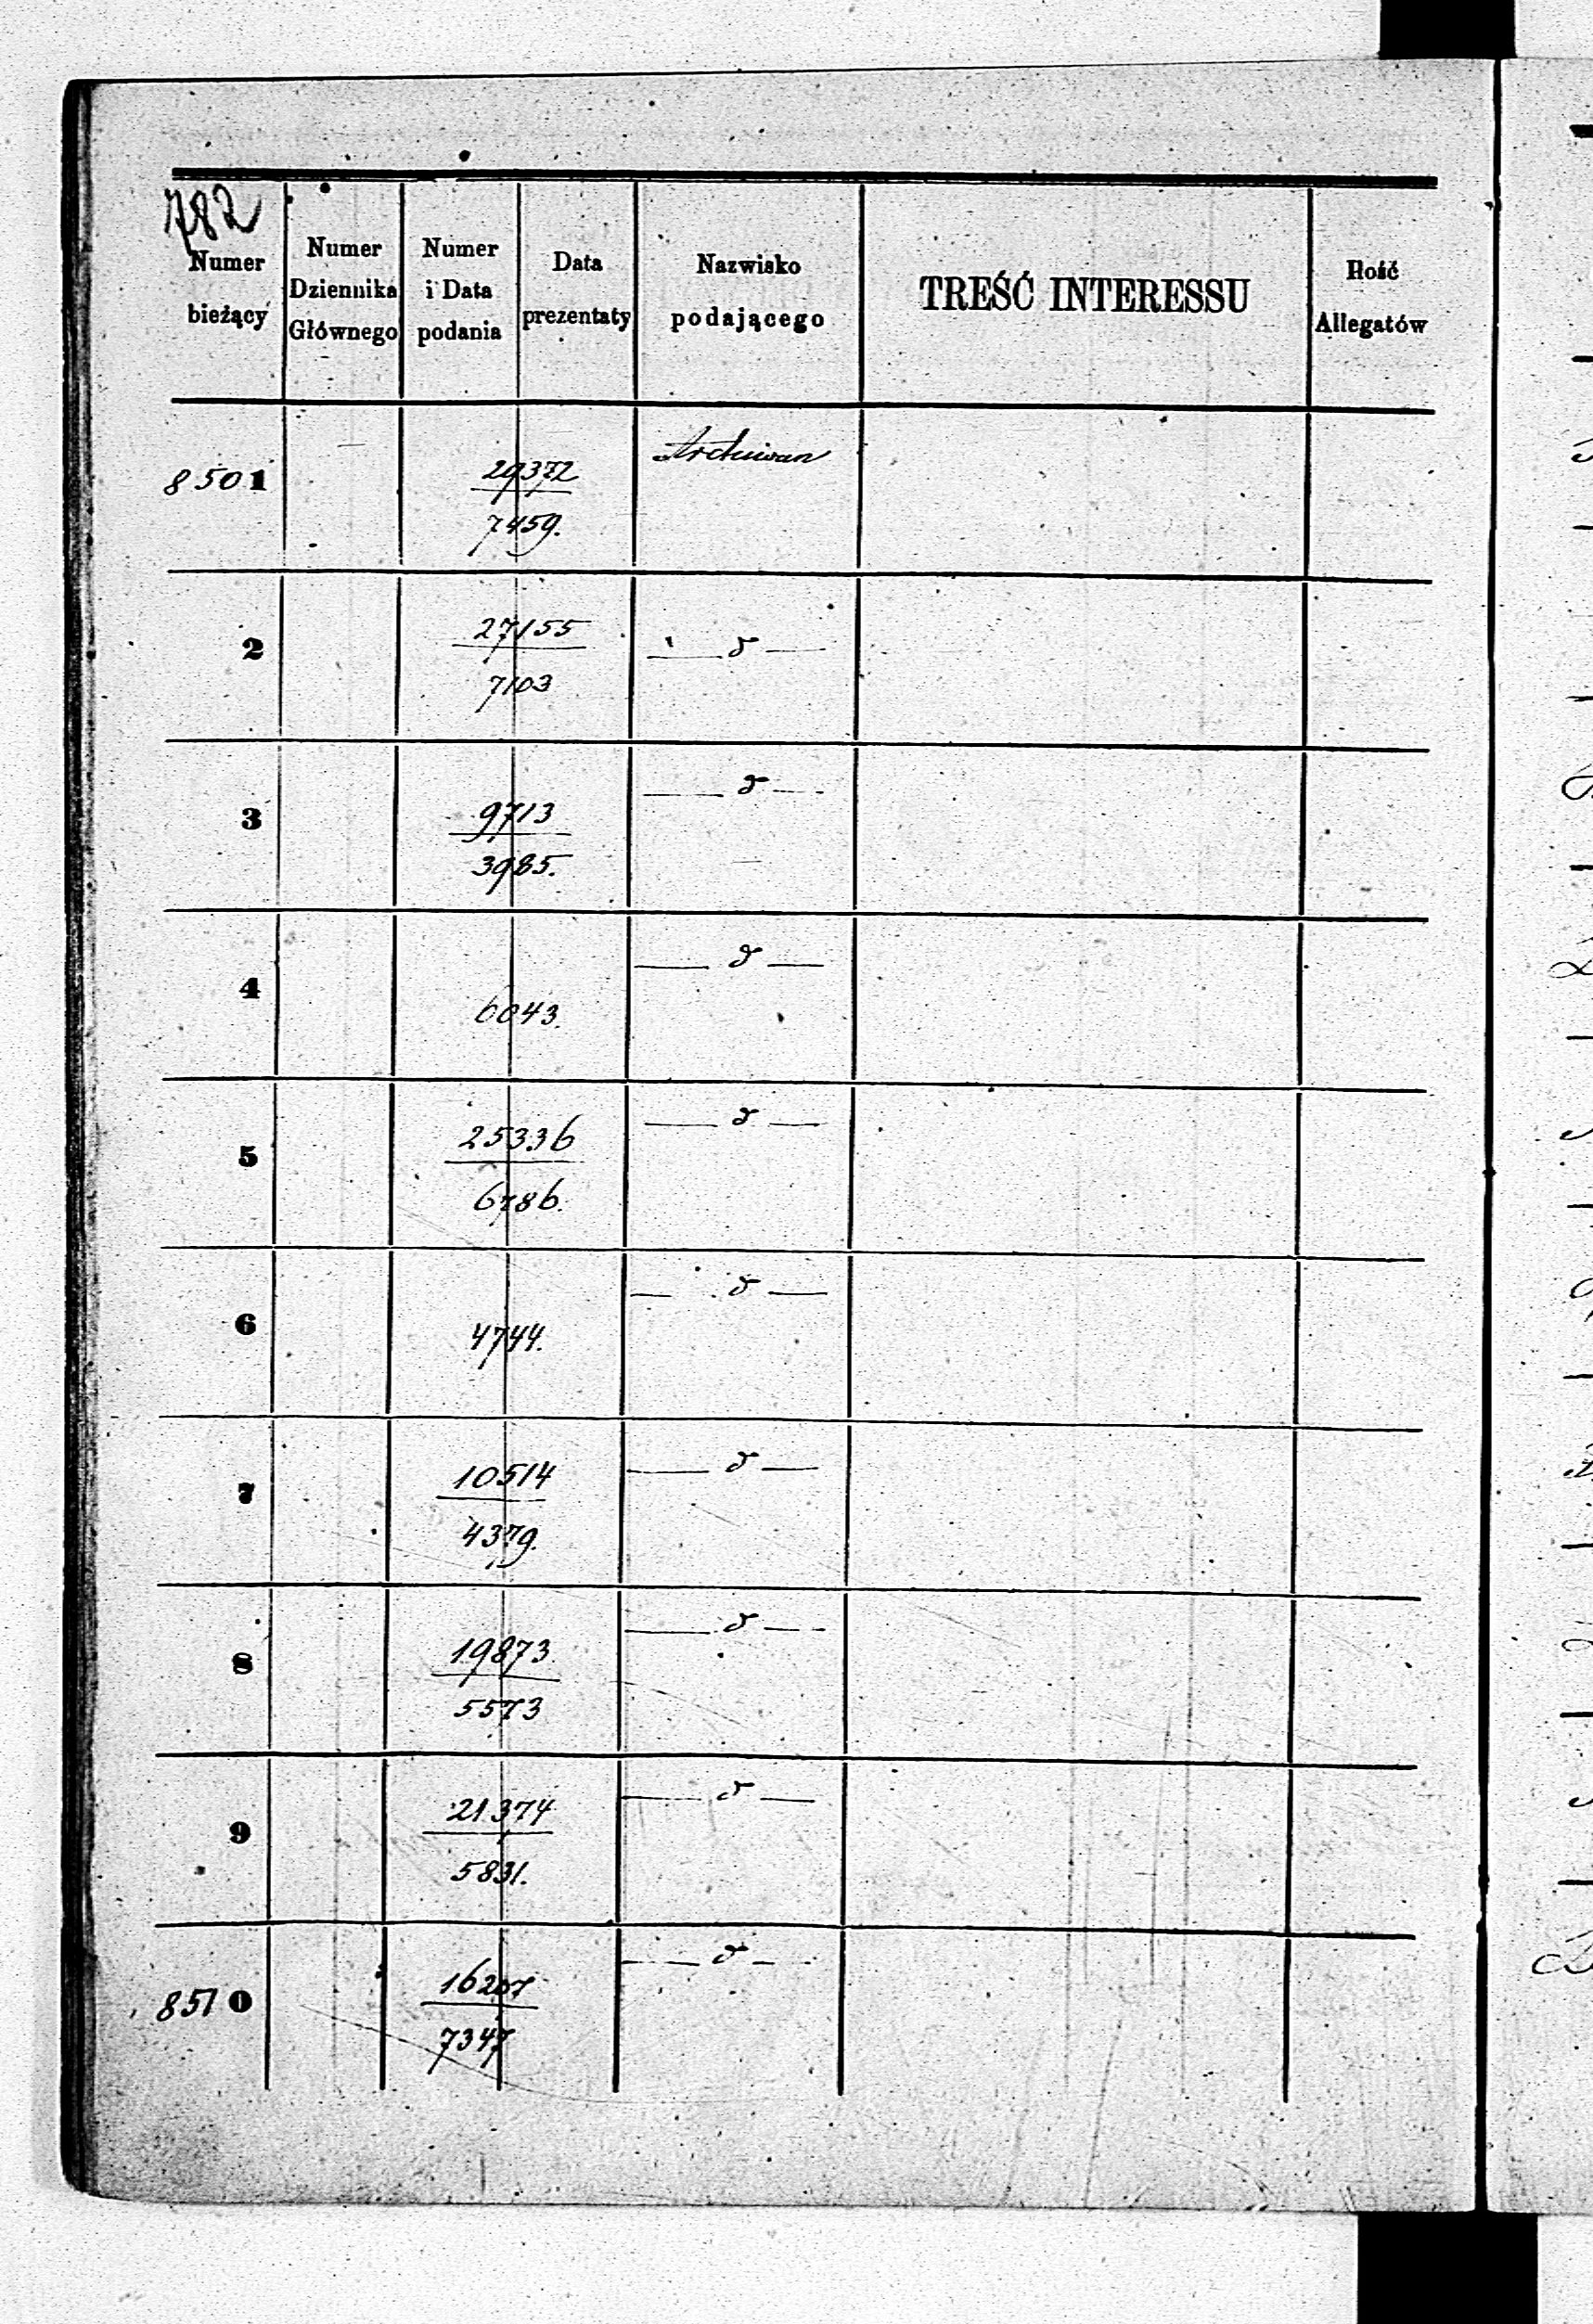 782
Numer bieżący
Numer Dziennika Głównego
Numer i Data podania
Data prezentaty
Nazwisko podającego
TREŚĆ INTERESSU
Ilość Allegatów
8501
29372
7459.
Archiwum
2
27155
7103
— d —
3
9713
3985.
— d —
4
6043.
— d —
5
25336
6786.
— d —
6
4744.
— d —
7
10514
4379.
— d —
8
19873
5573
— d —
9
21374
5831.
— d —
8510
16207
7347
— d —